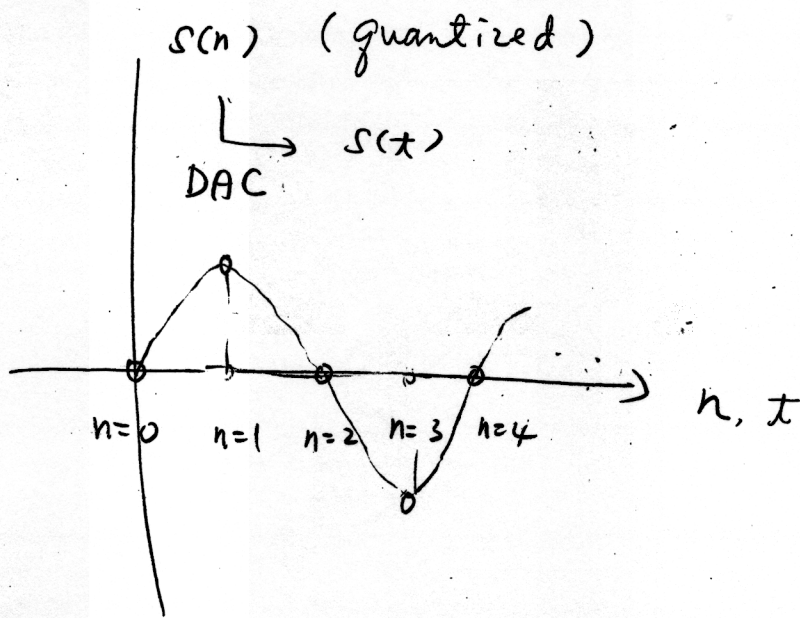 s(n) (quantized)
s(t)
DAC
n=0 n=1 n=2 n=3 n=4
n, t